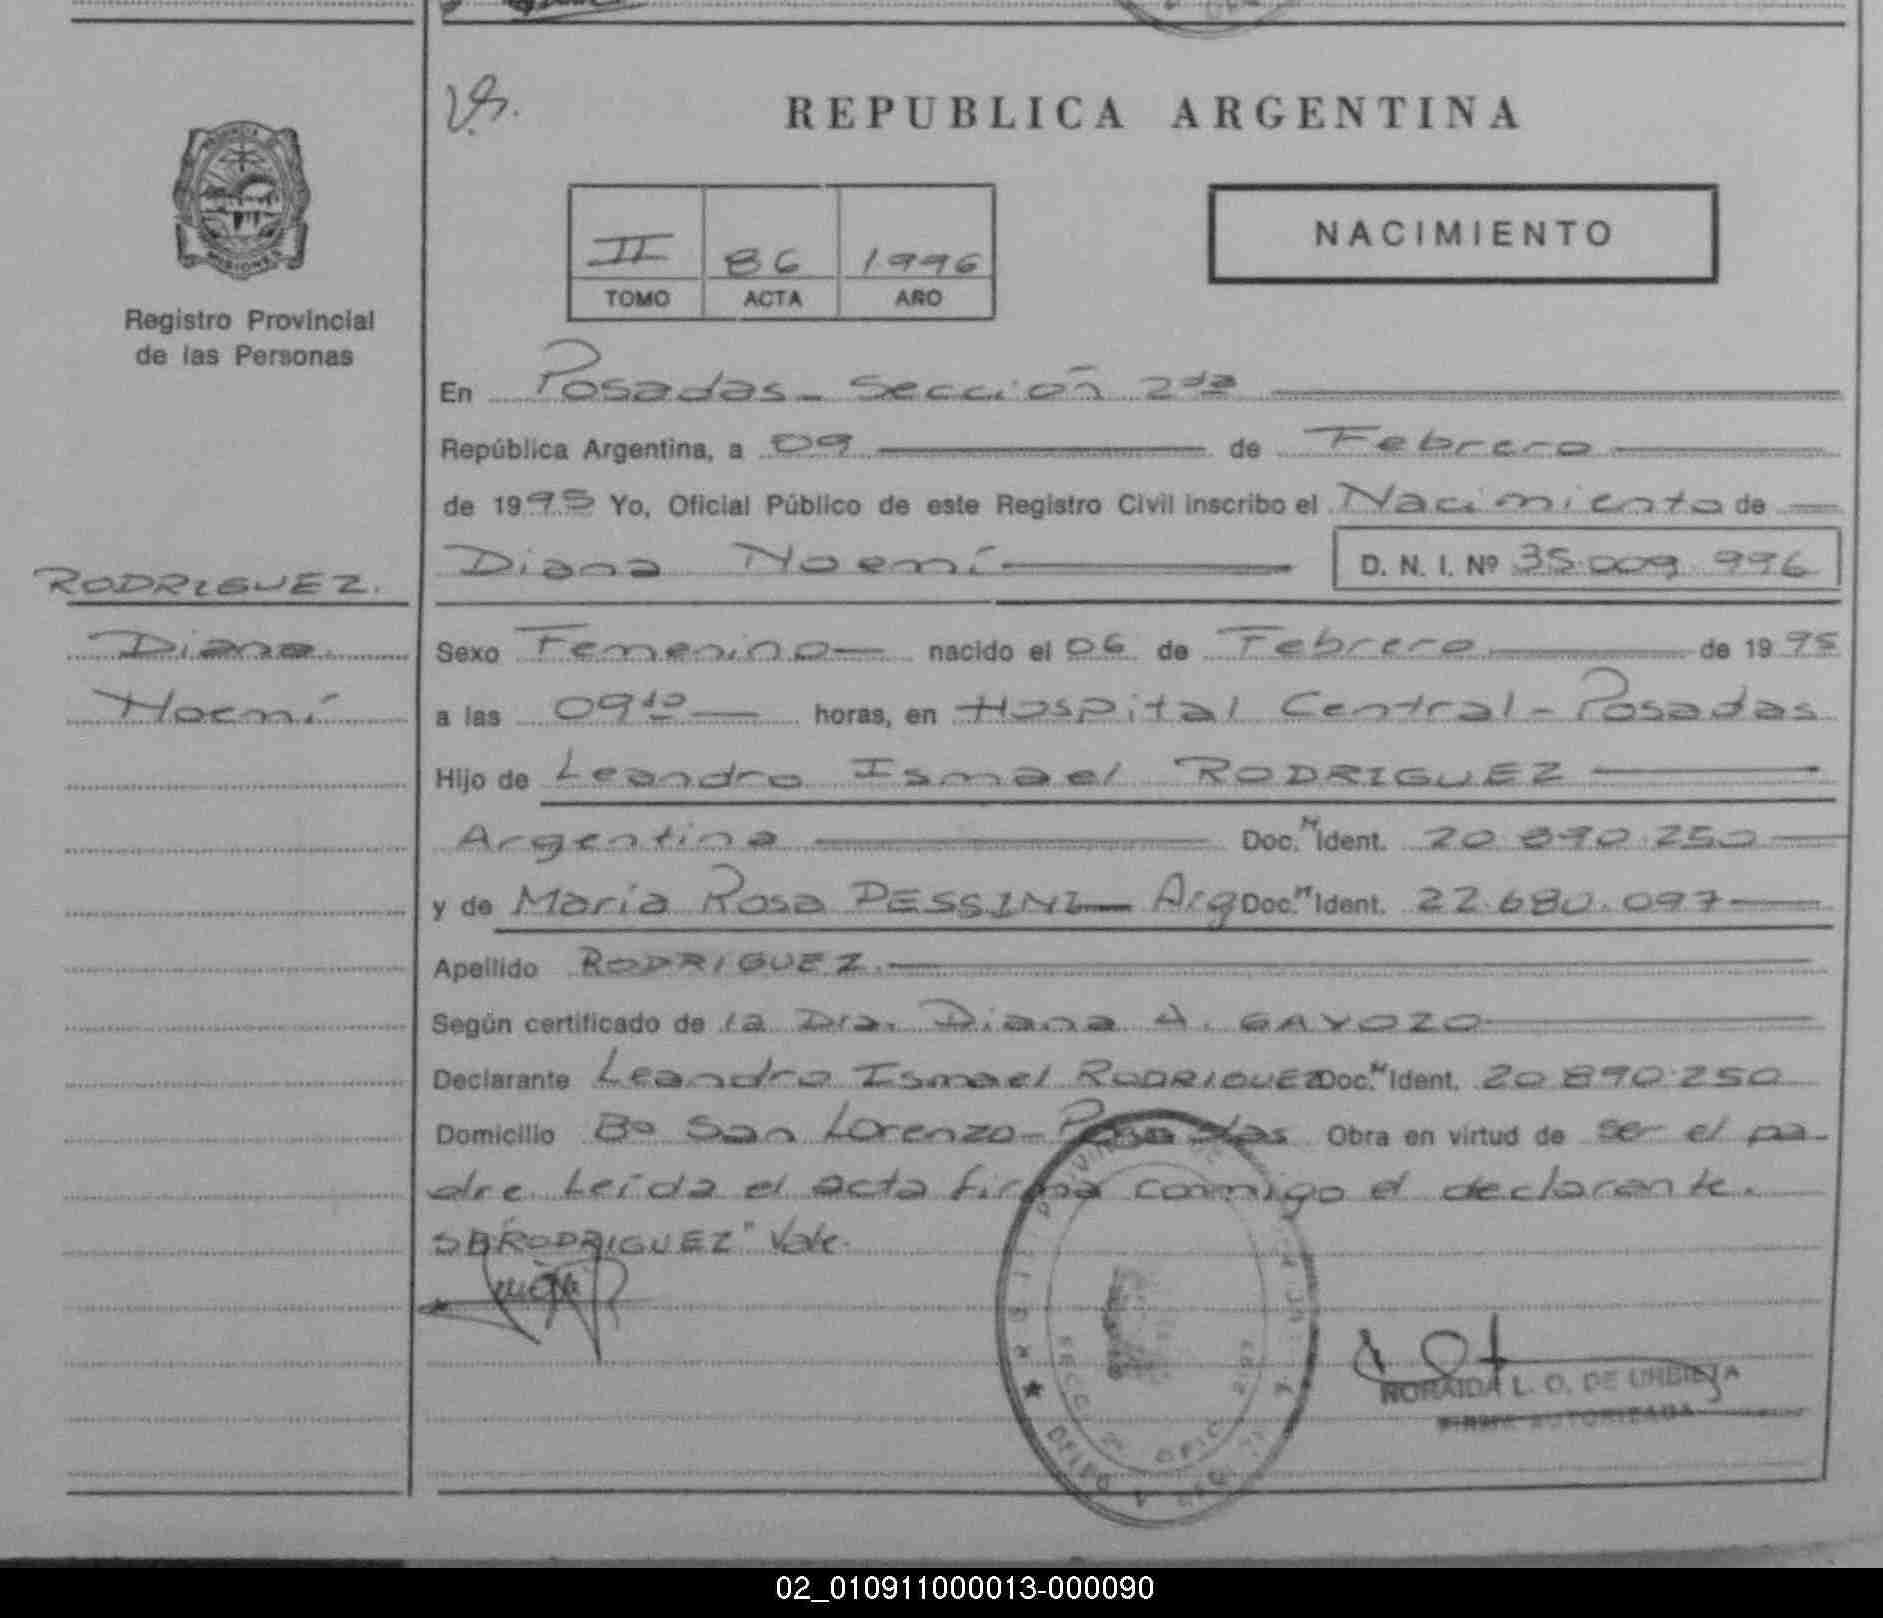 REPUBLICA ARGENTINA
NACIMIENTO
II 86 1996
TOMO ACTA AÑO
MISIONES
Registro Provincial
de las Personas
En Posadas - Sección 2da
República Argentina, a 09 de Febrero
de 1995 Yo, Oficial Público de este Registro Civil inscribo el Nacimiento de
Diana Noemí D. N. I. Nº 35.009.996
RODRIGUEZ.
Diana
Noemí
Sexo Femenino nacido el 06 de Febrero de 1995
a las 09 10 horas, en Hospital Central - Posadas
Hijo de Leandro Ismael RODRIGUEZ
Argentina Doc. N Ident. 20.890.250
y de María Rosa PESSINI - Arg Doc. N Ident. 22.680.097
Apellido RODRIGUEZ.
Según certificado de la Dra. Diana A. GAYOZO
Declarante Leandro Ismael RODRIGUEZ Doc. N Ident. 20.890.250
Domicilio Bº San Lorenzo - Posadas Obra en virtud de ser el pa-
dre Leída el acta firma conmigo el declarante.
SB RODRIGUEZ" Vale.
NORAIDA L. O. DE URBIETA
FIRMA AUTORIZADA
02_010911000013-000090